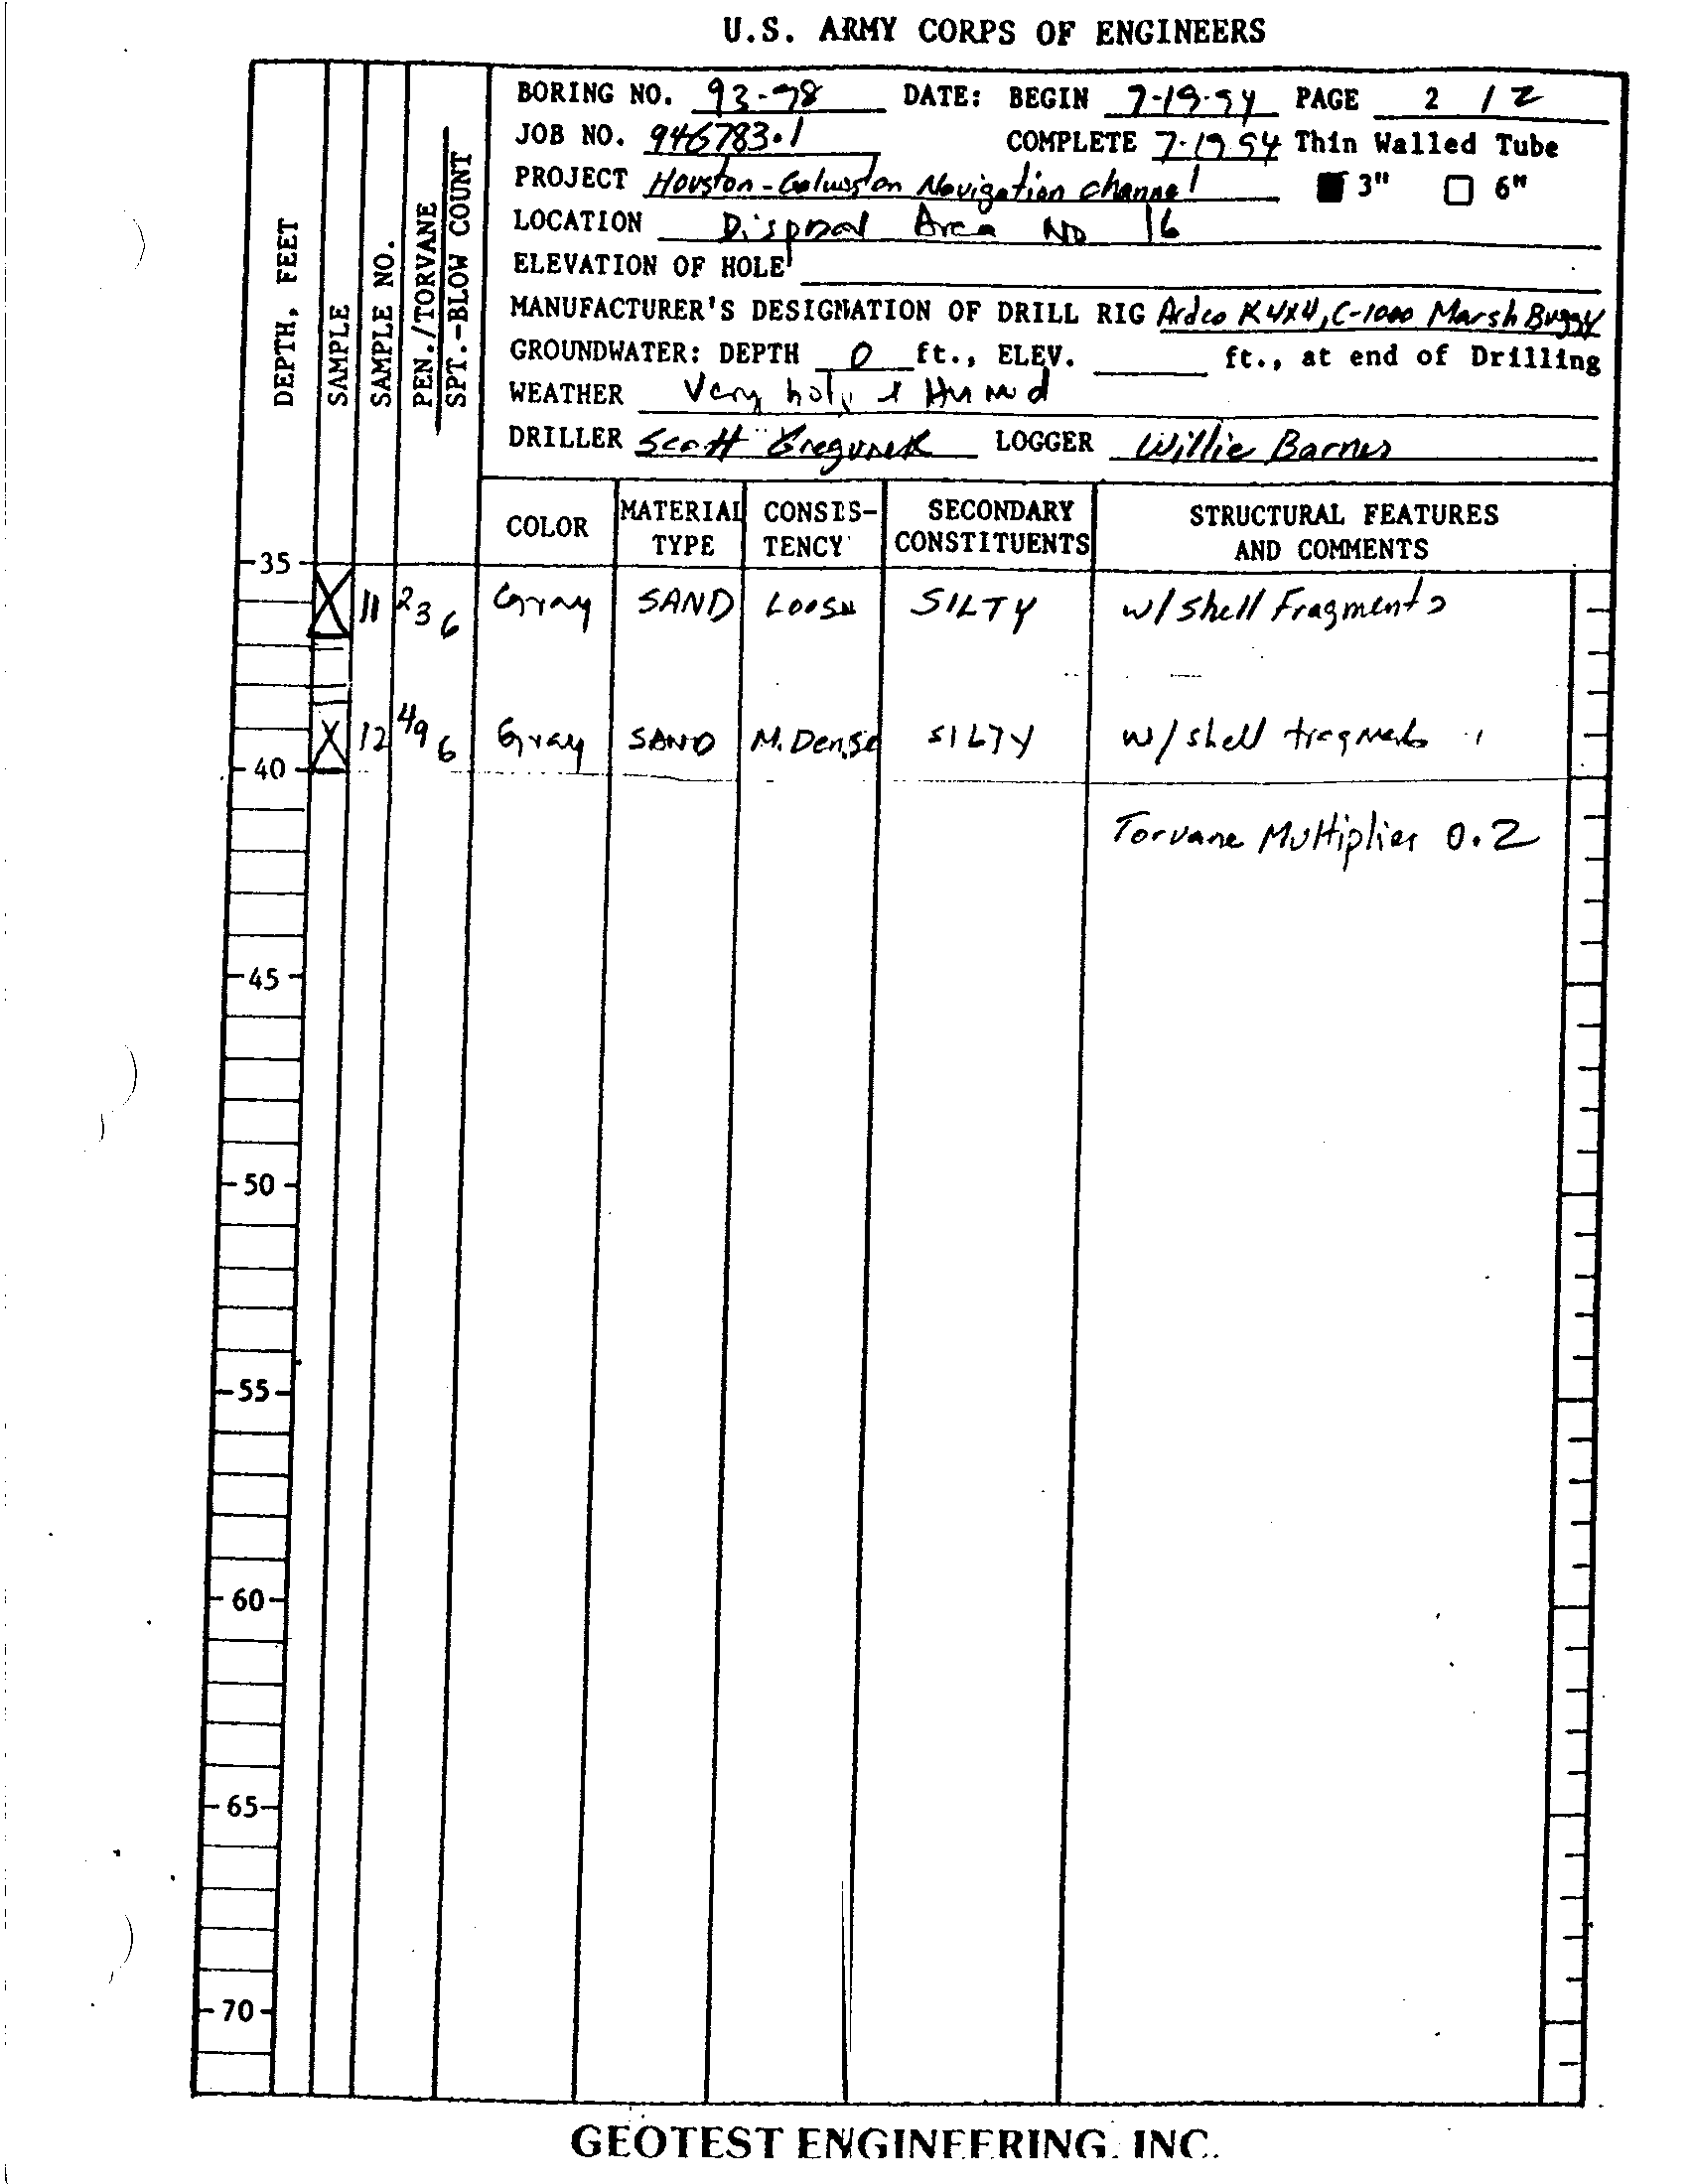 U.S. ARMY CORPS OF ENGINEERS
BORING NO. 93-98 DATE: BEGIN 7-19-94 PAGE 2 / 2
JOB NO. 946783.1 COMPLETE 7-19 94 Thin Walled Tube
PROJECT Houston-Galveston Navigation channel 3" 6"
LOCATION Disposal Area No 16
ELEVATION OF HOLE
MANUFACTURER'S DESIGNATION OF DRILL RIG Ardco K 4X4, C-1000 Marsh Buggy
GROUNDWATER: DEPTH 0 ft., ELEV. ft., at end of Drilling
WEATHER Very hot & Humid
DRILLER Scott LOGGER Willie Barnes
DEPTH, FEET
SAMPLE
SAMPLE NO.
PEN./TORVANE
SPT.-BLOW COUNT
COLOR MATERIAL TYPE CONSIS-TENCY SECONDARY CONSTITUENTS STRUCTURAL FEATURES AND COMMENTS
35
11 2 3 6 Gray SAND LOOSE SILTY w/ shell Fragments
12 4 9 6 Gray SAND M. Dense SILTY w/ shell fragments
40
Torvane Multiplier 0.2
45
50
55
60
65
70
GEOTEST ENGINEERING, INC.